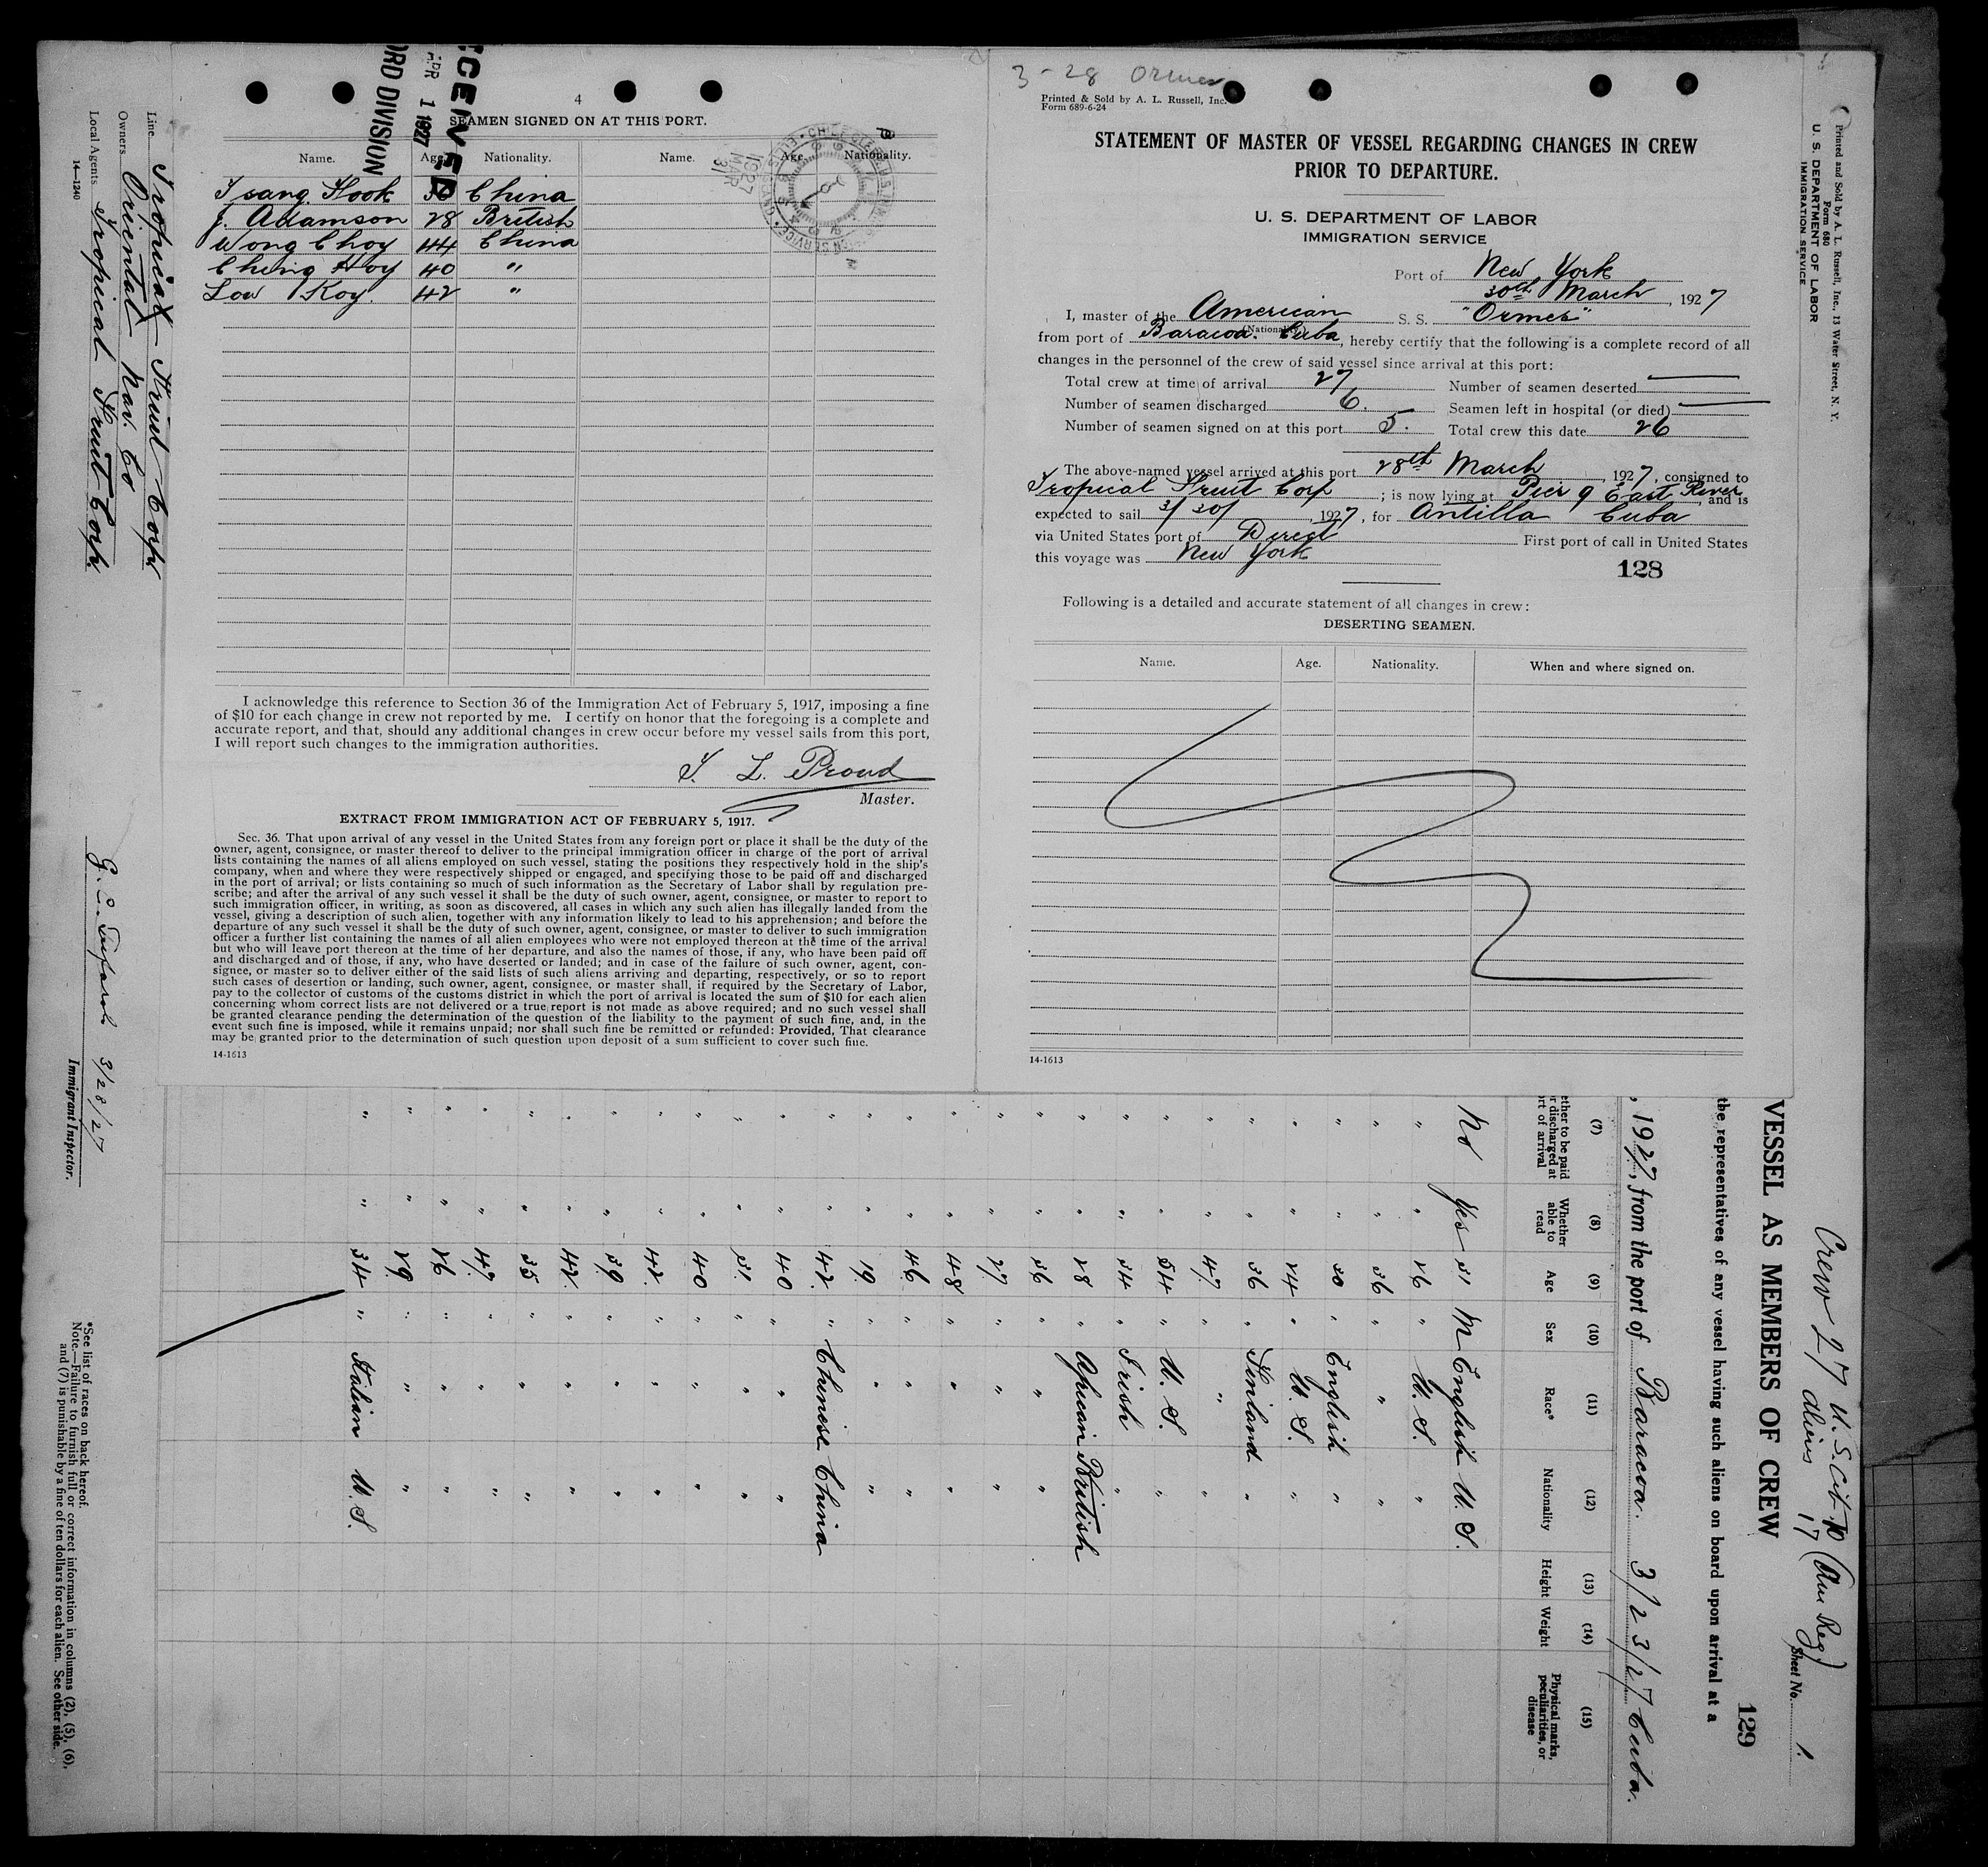 4
SEAMEN SIGNED ON AT THIS PORT.
Name. Age. Nationality. Name. Age. Nationality.
Tsang Hook 30 China
J. Adamson 28 British
Wong Choy 44 China
Ching Hoy 40 "
Low Koy. 42 "
APR 1 1927
ORD DIVISION
1927 MAR 31
I acknowledge this reference to Section 36 of the Immigration Act of February 5, 1917, imposing a fine
of $10 for each change in crew not reported by me. I certify on honor that the foregoing is a complete and
accurate report, and that, should any additional changes in crew occur before my vessel sails from this port,
I will report such changes to the immigration authorities.
L. Proud
Master.
EXTRACT FROM IMMIGRATION ACT OF FEBRUARY 5, 1917.
Sec. 36. That upon arrival of any vessel in the United States from any foreign port or place it shall be the duty of the
owner, agent, consignee, or master thereof to deliver to the principal immigration officer in charge of the port of arrival
lists containing the names of all aliens employed on such vessel, stating the positions they respectively hold in the ship's
company, when and where they were respectively shipped or engaged, and specifying those to be paid off and discharged
in the port of arrival; or lists containing so much of such information as the Secretary of Labor shall by regulation pre-
scribe; and after the arrival of any such vessel it shall be the duty of such owner, agent, consignee, or master to report to
such immigration officer, in writing, as soon as discovered, all cases in which any such alien has illegally landed from the
vessel, giving a description of such alien, together with any information likely to lead to his apprehension; and before the
departure of any such vessel it shall be the duty of such owner, agent, consignee, or master to deliver to such immigration
officer a further list containing the names of all alien employees who were not employed thereon at the time of the arrival
but who will leave port thereon at the time of her departure, and also the names of those, if any, who have been paid off
and discharged and of those, if any, who have deserted or landed; and in case of the failure of such owner, agent, con-
signee, or master so to deliver either of the said lists of such aliens arriving and departing, respectively, or so to report
such cases of desertion or landing, such owner, agent, consignee, or master shall, if required by the Secretary of Labor,
pay to the collector of customs of the customs district in which the port of arrival is located the sum of $10 for each alien
concerning whom correct lists are not delivered or a true report is not made as above required; and no such vessel shall
be granted clearance pending the determination of the question of the liability to the payment of such fine, and, in the
event such fine is imposed, while it remains unpaid; nor shall such fine be remitted or refunded: Provided, That clearance
may be granted prior to the determination of such question upon deposit of a sum sufficient to cover such fine.
14-1613
3-28 Ormes
Printed & Sold by A. L. Russell, Inc.
Form 689-6-24
STATEMENT OF MASTER OF VESSEL REGARDING CHANGES IN CREW
PRIOR TO DEPARTURE.
U. S. DEPARTMENT OF LABOR
IMMIGRATION SERVICE
Port of New York
30th March, 1927
I, master of the American S. S. "Ormes"
(Nationality)
from port of Baracoa. Cuba, hereby certify that the following is a complete record of all
changes in the personnel of the crew of said vessel since arrival at this port:
Total crew at time of arrival 27 Number of seamen deserted —
Number of seamen discharged 6. Seamen left in hospital (or died) —
Number of seamen signed on at this port 5. Total crew this date 26
The above-named vessel arrived at this port 28th March, 1927, consigned to
Tropical Fruit Corp; is now lying at Pier 9 East River and is
expected to sail 3/30/, 1927, for Antilla Cuba
via United States port of Direct First port of call in United States
this voyage was New York
128
Following is a detailed and accurate statement of all changes in crew:
DESERTING SEAMEN.
Name. Age. Nationality. When and where signed on.
14-1613
Printed and Sold by A. L. Russell, Inc., 13 Water Street, N. Y.
Form 680
U. S. DEPARTMENT OF LABOR
IMMIGRATION SERVICE
Crew 27 U.S. Cit. 10 (Am Reg)
Aliens 17
Sheet No. 1.
129
VESSEL AS MEMBERS OF CREW
the representatives of any vessel having such aliens on board upon arrival at a
, 1927, from the port of Baracoa. 3/23/27 Cuba.
(7) (8) (9) (10) (11) (12) (13) (14) (15)
ether to be paid
r discharged at
rt of arrival
Whether able to read
Age
Sex
Race*
Nationality
Height
Weight
Physical marks, peculiarities, or disease
No Yes 31 M English U. S.
" " 26 " U. S. "
" " 36 " " "
" " 30 " English "
" " 24 " U. S. "
" " 36 " Finland "
" " 47 " " "
" " 54 " U. S. "
" " 34 " Irish "
" " 28 " African British
" " 36 " " "
" " 27 " " "
" " 48 " " "
" " 46 " " "
" " 19 " " "
" " 42 " Chinese China
" " 40 " " "
" " 31 " " "
" " 40 " " "
" " 42 " " "
" " 39 " " "
" " 42 " " "
" " 35 " " "
" " 47 " " "
" " 26 " " "
" " 29 " " "
" " 34 " Italian U. S.
Line Tropical Fruit Corp
Owners Oriental Nav. Co
Local Agents Tropical Fruit Corp.
14-1240
3/28/27
Immigrant Inspector.
*See list of races on back hereof.
Note.—Failure to furnish full or correct information in columns (2), (5), (6),
and (7) is punishable by a fine of ten dollars for each alien. See other side.